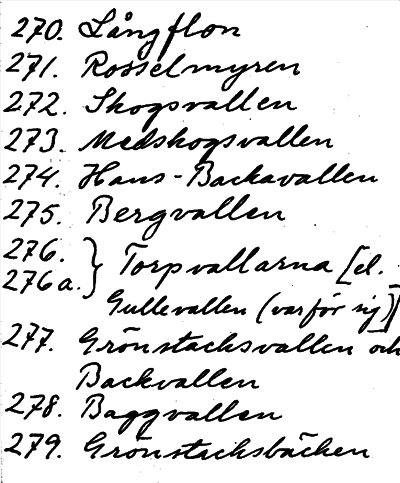 270. Långflon
271. Rosselmyren
272. Skogsvallen
273. Medskogsvallen
274. Hans-Backavallen
275. Bergvallen
276.
276a. } Torpvallarna [el.
Gullevallen (var för sig)]
277. Grönstacksvallen och
Backvallen
278. Baggvallen
279. Grönstacksbäcken